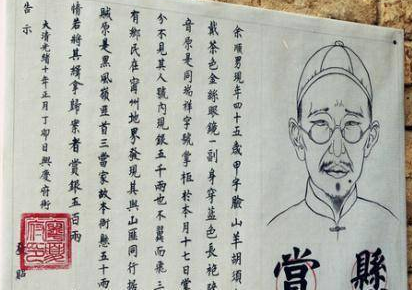 縣
賞
余順男現年四十五歲甲字臉山羊胡須
戴茶色金絲眼鏡一副身穿藍色長袍
音原是同瑞祥字號掌柜於本月十七日堂
分不見其人號內現銀五千兩也不翼而飛三
有鄉民在甯州地界發現其與山匪同行據
賊原是黑風嶺匪首三當家故本衙懸五十兩
情若將其緝拿歸案者賞銀五百兩
大清光緒十年正月丁卯日興慶府衙
告示